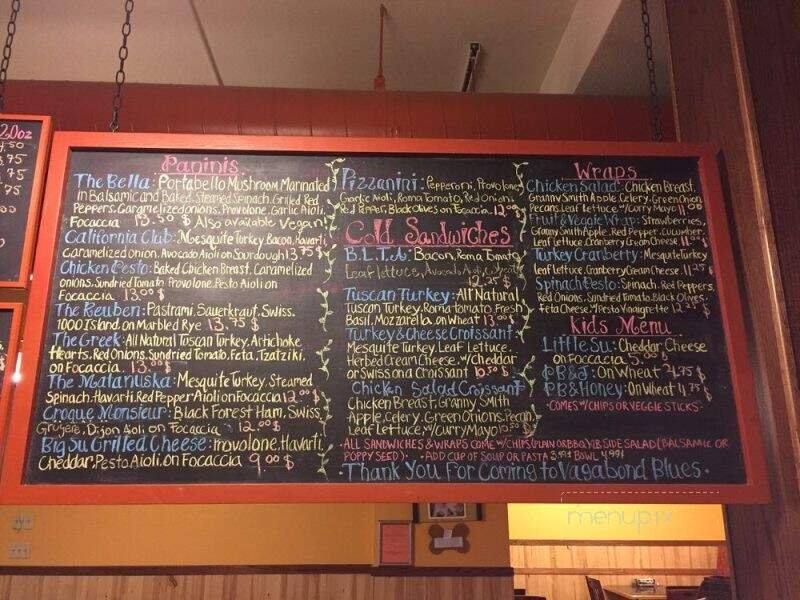 20oz
4.50
3.75
Paninis
The Bella: Portabello Mushroom Marinated
in Balsamic and Baked, Steamed Spinach, Grilled Red
Peppers, Caramelized onions, Provolone, Garlic Aioli,
Focaccia 13.50 $ Also available Vegan!
California Club: Mesquite Turkey, Bacon, Havarti,
Caramelized onion, Avocado Aioli on Sourdough 13.75 $
Chicken Pesto: Baked Chicken Breast, Caramelized
onions, Sundried Tomato, Provolone, Pesto Aioli on
Focaccia 13.00 $
The Reuben: Pastrami, Sauerkraut, Swiss,
1000 Island on Marbled Rye 13.75 $
The Greek: All Natural Tuscan Turkey, Artichoke
Hearts, Red Onions, Sundried Tomato, Feta, Tzatziki,
on Focaccia. 13.00 $
The Matanuska: Mesquite Turkey, Steamed
Spinach, Havarti, Red Pepper Aioli on Focaccia 12.00 $
Croque Monsieur: Black Forest Ham, Swiss,
Gruyere, Dijon Aoli on Focaccia 12.00 $
Big Su Grilled Cheese: Provolone, Havarti,
Cheddar, Pesto Aioli, on Focaccia 9.00 $
Pizzanini: Pepperoni, Provolone,
Garlic Aoli, Roma Tomato, Red Onion,
Red Pepper, Black Olives on Focaccia 12.00
Cold Sandwiches
B.L.T.A: Bacon, Roma Tomato,
Leaf lettuce, Avocado Aioli, 
12.25 $
Tuscan Turkey: All Natural
Tuscan Turkey, Roma tomato, Fresh
Basil, Mozzarella, on Wheat 13.00 $
Turkey & Cheese Croissant:
Mesquite Turkey, Leaf Lettuce,
Herbed Cream Cheese, w/Cheddar
or Swiss on a Croissant 10.50 $
Chicken Salad Croissant
Chicken Breast, Granny Smith
Apple, Celery, Green Onions, Pecan,
Leaf Lettuce, w/Curry Mayo 10.50 $
Wraps
Chicken Salad: Chicken Breast,
Granny Smith Apple, Celery, Green Onion,
Pecans, Leaf Lettuce, w/Curry Mayo 11.00
Fruit & Veggie Wrap: Strawberries,
Granny Smith Apple, Red Pepper, Cucumber,
Leaf Lettuce, Cranberry Cream Cheese, 11.00 $
Turkey Cranberry: Mesquite Turkey
leaf Lettuce, Cranberry Cream Cheese, 11.25 $
Spinach Pesto: Spinach, Red Peppers,
Red Onions, Sundried Tomato, Black Olives,
Feta Cheese, w/Pesto Vinaigrette 12.25 $
Kids Menu
Little Su: Cheddar Cheese
on Foccacia 5.00 $
PB&J: On Wheat 4.75 $
PB & Honey: On Wheat 4.75 $
·Comes w/chips or veggie sticks·
·All sandwiches & wraps come w/chips (plain or BBQ) or side salad (Balsamic or
Poppy seed). ·Add cup of soup or pasta 3.99$ bowl 4.99$
·Thank You For Coming to Vagabond Blues·
menupix